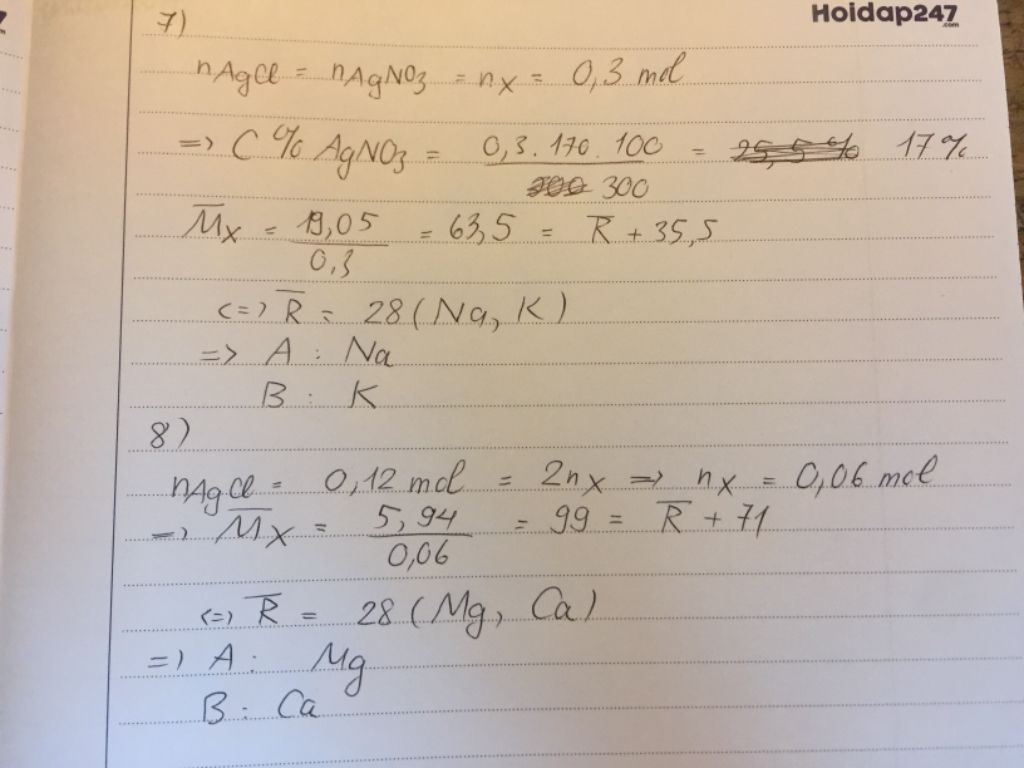 Hoidap247
.com
7)
nAgCl = nAgNO3 = nX = 0,3 mol
=> C% AgNO3 = 0,3.170.100 / 300 = 25,5% 17%
M̅X = 19,05 / 0,3 = 63,5 = R̅ + 35,5
<=> R̅ = 28 (Na, K)
=> A : Na
B : K
8)
nAgCl = 0,12 mol = 2nX => nX = 0,06 mol
=> M̅X = 5,94 / 0,06 = 99 = R̅ + 71
<=> R̅ = 28 (Mg, Ca)
=> A : Mg
B : Ca